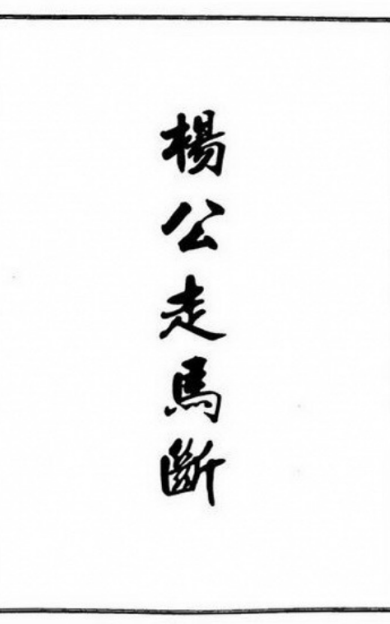 楊公走馬斷